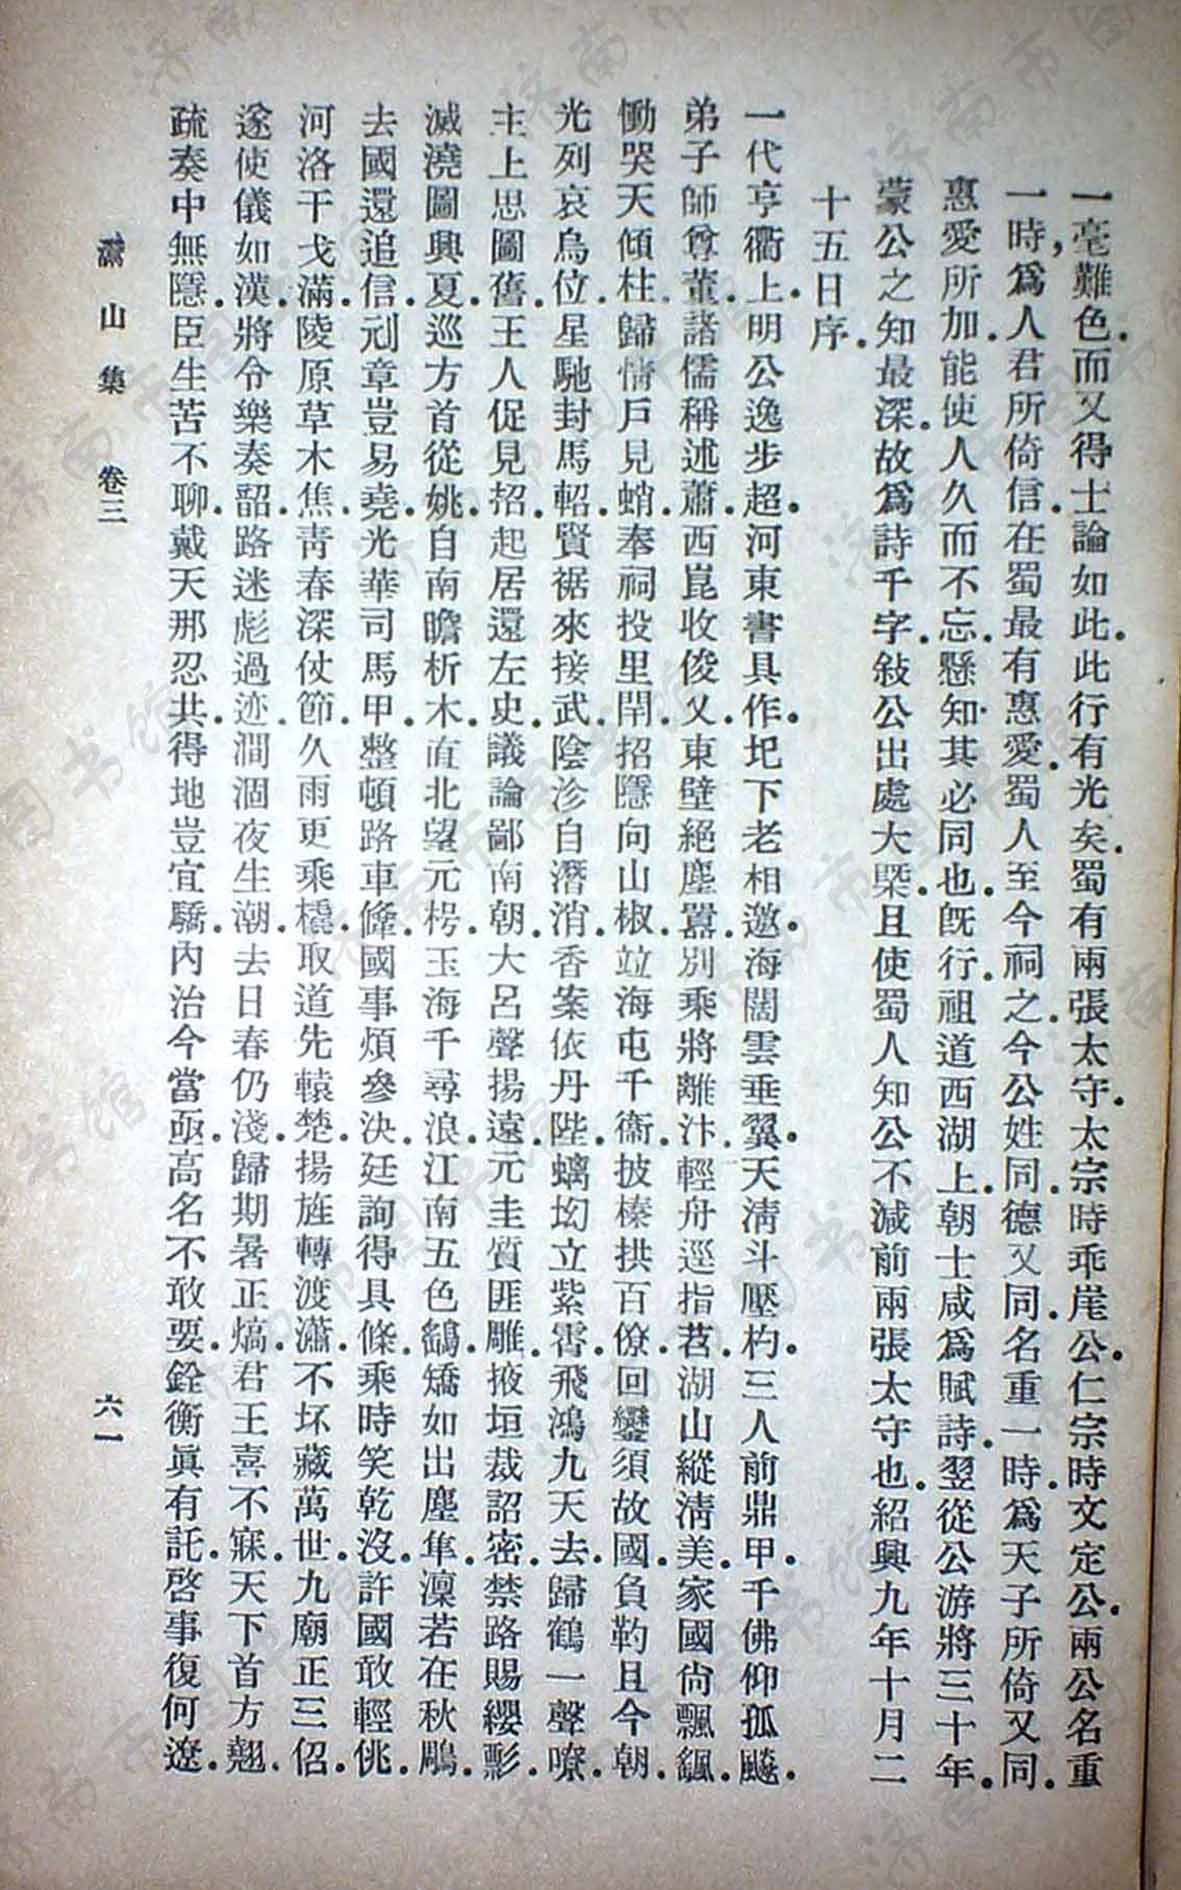 一毫難色．而又得士論如此．此行有光矣．蜀有兩張太守．太宗時乖崖公．仁宗時文定公．兩公名重
一時，爲人君所倚信．在蜀最有惠愛．蜀人至今祠之．今公姓同．德又同．名重一時．爲天子所倚又同．
惠愛所加．能使人久而不忘．懸知其必同也．旣行．祖道西湖上．朝士咸爲賦詩．翌從公游將三十年．
蒙公之知最深．故爲詩千字．敍公出處大槩．且使蜀人知公不減前兩張太守也．紹興九年十月二
十五日序．
一代亨衢上．明公逸步超．河東書具作．圯下老相邀．海闊雲垂翼．天淸斗壓杓．三人前鼎甲．千佛仰孤飈．
弟子師尊董．諸儒稱述蕭．西崑收俊乂．東壁絕塵囂．別乘將離汴．輕舟逕指苕．湖山縱淸美．家國尙飄颻．
慟哭天傾柱．歸情戶見蛸．奉祠投里閈．招隱向山椒．竝海屯千衞．披榛拱百僚．回鑾須故國．負靮且今朝．
光列哀烏位．星馳封馬軺．賢裾來接武．陰沴自潛消．香案依丹陛．螭坳立紫霄．飛鴻九天去．歸鶴一聲嘹．
主上思圖舊．王人促見招．起居還左史．議論鄙南朝．大呂聲揚遠．元圭質匪雕．掖垣裁詔密．禁路賜纓髟．
滅澆圖興夏．巡方首從姚．自南瞻析木．直北望元枵．玉海千尋浪．江南五色鷂．矯如出塵隼．凜若在秋鵰．
去國還追信．刓章豈易堯．光華司馬甲．整頓路車鞗．國事煩參決．廷詢得具條．乘時笑乾沒．許國敢輕佻．
河洛干戈滿．陵原草木焦．靑春深仗節．久雨更乘橇．取道先轅楚．揚旌轉渡瀟．不坏藏萬世．九廟正三佋．
遂使儀如漢．將令樂奏韶．路迷彪過迹．澗涸夜生潮．去日春仍淺．歸期暑正熇．君王喜不寐．天下首方翹．
疏奏中無隱．臣生苦不聊．戴天那忍共．得地豈宜驕．內治今當亟．高名不敢要．銓衡眞有託．啓事復何遼．
灊山集　卷三
六一